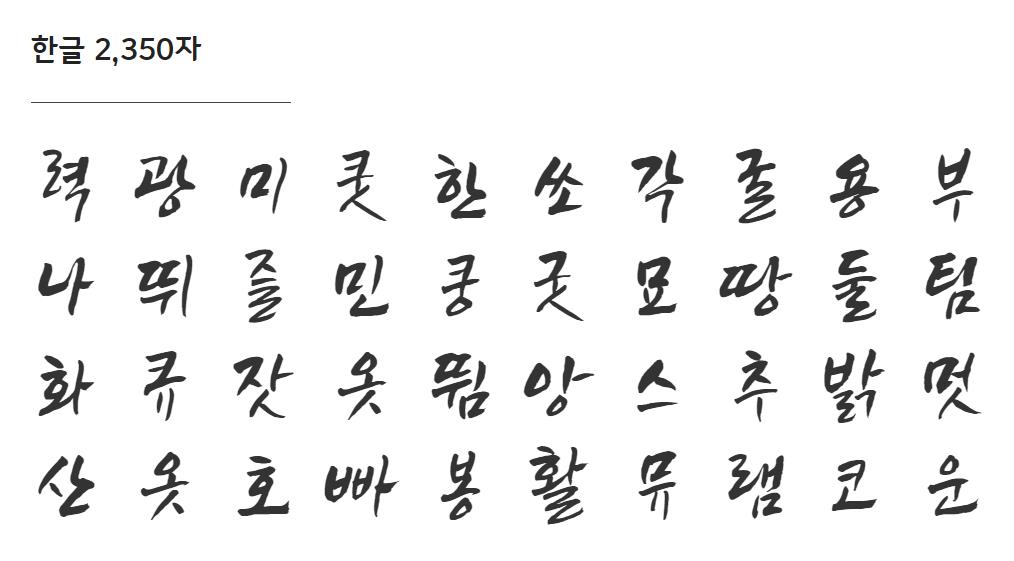 한글 2,350자
력 광 미 쿳 한 쏘 각 굴 용 부
나 뛰 즐 민 쿵 굿 묘 땅 둘 팀
화 큐 잣 옷 뜀 앙 스 추 밝 멋
산 옷 호 빠 봉 활 뮤 램 코 운